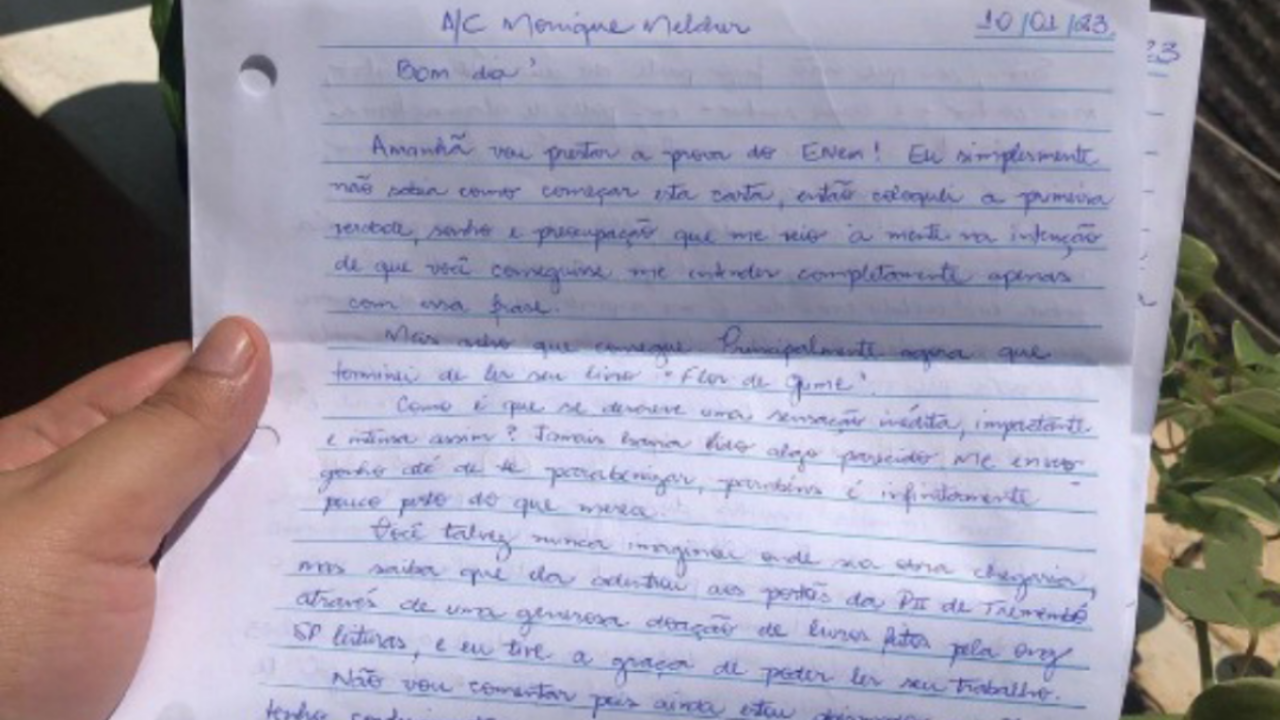 A/C Monique Malcher 10/01/23
23
Bom dia!
Amanhã vou prestar a prova do ENEM! Eu simplesmente
não sabia como começar esta carta, então coloquei a primeira
verdade, sonho e preocupação que me veio à mente na intenção
de que você conseguisse me entender completamente apenas
com essa frase.
Mas acho que consegue. Principalmente agora que
terminei de ler seu livro "Flor de Gume".
Como é que se descreve uma sensação inédita, impactante
e intensa assim? Jamais havia lido algo parecido. Me enver-
gonho até de te parabenizar, parabéns é infinitamente
pouco perto do que merece.
Você talvez nunca imaginou onde sua obra chegaria,
mas saiba que ela adentrou aos portões da PII de Tremembé
através de uma generosa doação de livros feitos pela ong
SP leituras, e eu tive a graça de poder ler seu trabalho.
Não vou comentar pois ainda estou
tenho